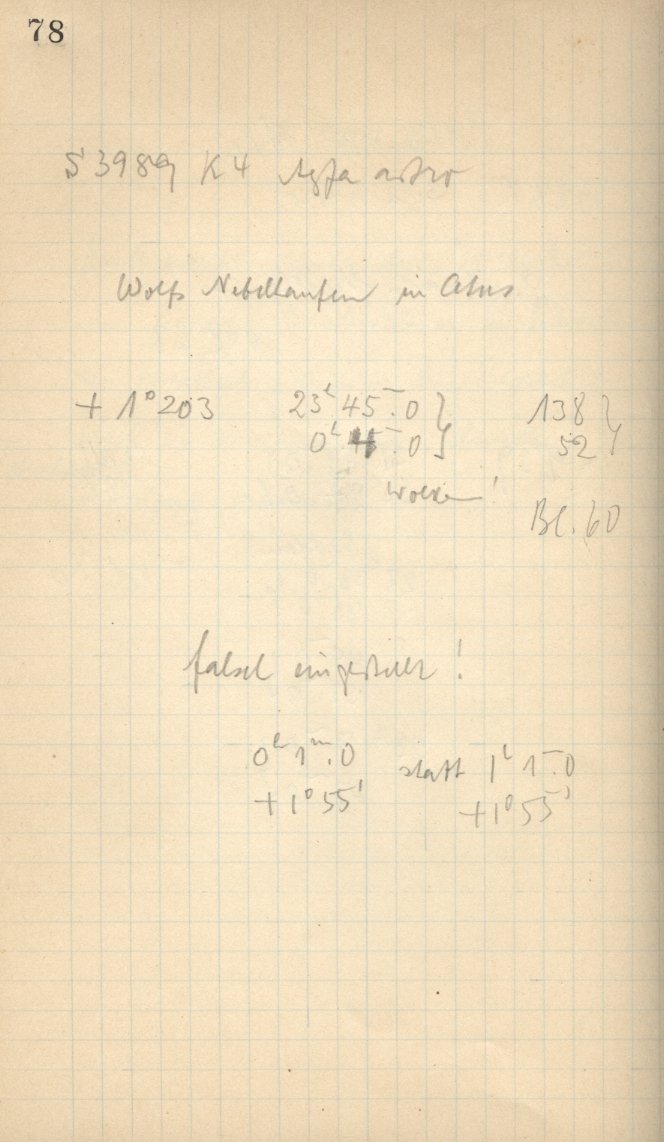 78
S 3989 K4 Agfa astro
Wolfs Nebelhaufen in Cetus
+ 1° 203 23ʰ 45ᵐ.0 } 138 }
0ʰ 45ᵐ.0 } 52 }
Wolken!
Bl. 60
falsch eingestellt!
0ʰ 1ᵐ.0 statt 1ʰ 1ᵐ.0
+ 1° 55' + 1° 55'